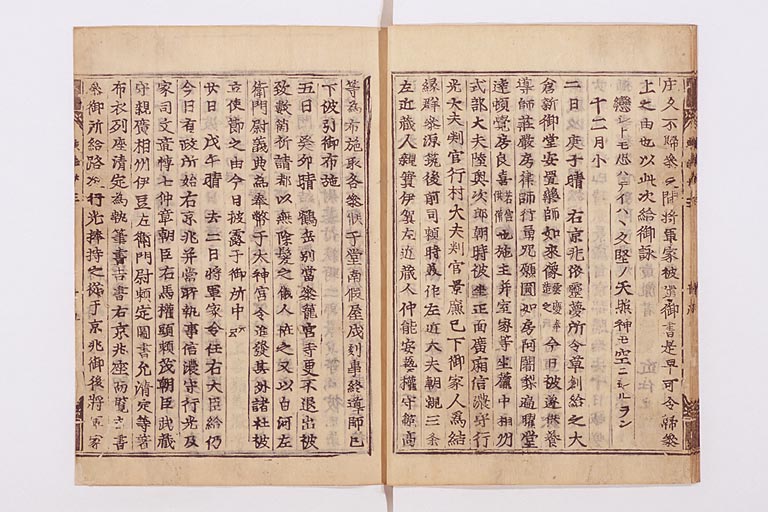 庄久不歸參之間將軍家被遣御書是早可令歸參
上之由也以此次給御詠
十二月小
二日庚子晴右京兆依靈夢所令草創給之大
倉新御堂安置藥師如來像 今日被遂供養
導師莊嚴房律師行勇咒願圓如房阿闍梨遍曜堂
達頓覺房良喜 也施主并室家等坐簾中相州
式部大夫陸奥次郎朝時被坐正面廣廂信濃守行
光大夫判官行村大夫判官景廉已下御家人爲結
縁群參源筑後前司頼時美作左近大夫朝親三条
左近藏人親實伊賀左近藏人仲能安藝權守範高
等爲布施取各參候于堂南假屋及刻事終導師已
下被引御布施
五日癸卯晴鶴岳別當參龍宮寺更不退出被
致 祈請都以無除髪之儀人恠之又以白河左
衛門尉義典爲奉幣于大神宮令進發其外諸社被
立使節之由今日披露于御所中云々
廿日戊午晴去二日將軍家令任右大臣給仍
今日有政所始右京兆并當所執事信濃守行光及
家司文章博士仲章朝臣右馬權頭頼茂朝臣武藏
守親廣相州伊豆左衛門尉頼定圖書允清定等著
布衣列座清定爲執筆書吉書右京兆座而覧吉書
參御所給路次行光捧持之從于京兆御後將軍家